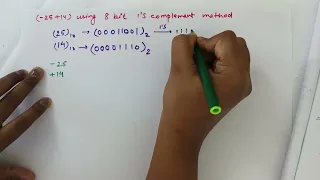 (-25+14) using 8 bit 1's complement method
(25)₁₀ → (00011001)₂ 1's → 111
(14)₁₀ → (00001110)₂
-25
+14